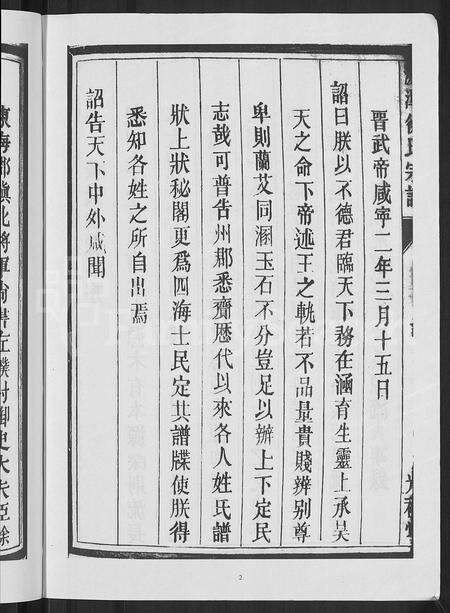 晋武帝咸寧二年三月十五日
詔曰朕以不德君臨天下務在涵育生靈上承昊
天之命下帝述王之軌若不品量貴賤辨别尊
卑則蘭艾同溷玉石不分豈足以辨上下定民
志哉可普告州郡悉賫歴代以來各人姓氏譜
狀上狀秘閣更爲四海士民定其譜牒使朕得
悉知各姓之所自出焉
詔告天下中外咸聞
東海郡鎮北將軍尙書左僕射御史大夫臣徐
2